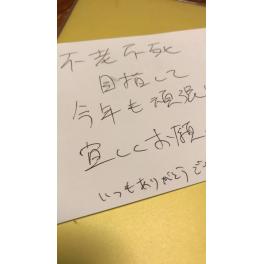 不老不死
目指して
今年も頑張
宜しくお願
いつもありがとうご